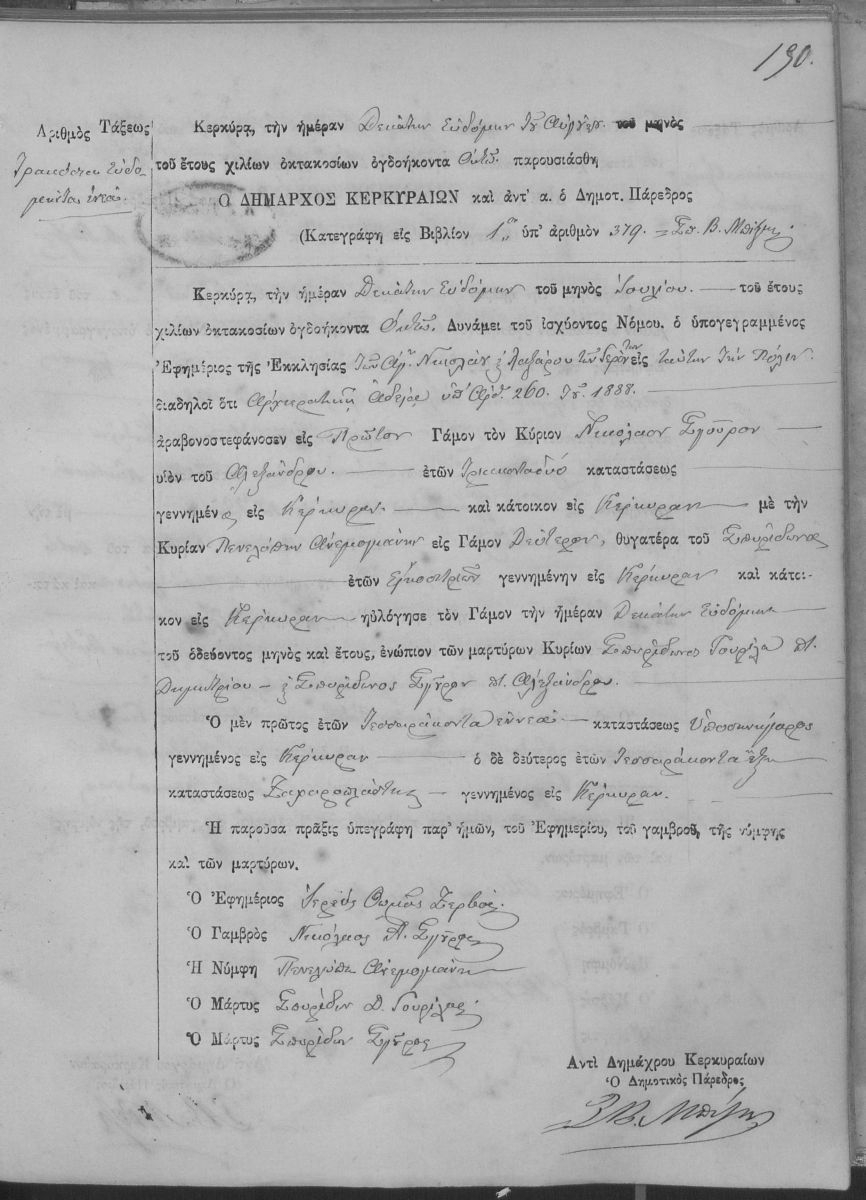 190.
Ἀριθμὸς Τάξεως
Τριακόσιοι Ἑβδο-
μήκοντα ἐννέα.
Κερκύρα, τὴν ἡμέραν Δεκάτην Ἑβδόμην τοῦ μηνὸς
τοῦ ἔτους χιλίων ὀκτακοσίων ὀγδοήκοντα Ὀκτὼ παρουσιάσθη
Ὁ ΔΗΜΑΡΧΟΣ ΚΕΡΚΥΡΑΙΩΝ καὶ ἀντ' α. ὁ Δημοτ. Πάρεδρος
(Κατεγράφη εἰς Βιβλίον 1ον ὑπ' ἀριθμὸν 379.
Κερκύρα, τὴν ἡμέραν Δεκάτην Ἑβδόμην τοῦ μηνὸς Ἰουλίου. τοῦ ἔτους
χιλίων ὀκτακοσίων ὀγδοήκοντα Ὀκτώ. Δυνάμει τοῦ ἰσχύοντος Νόμου. ὁ ὑπογεγραμμένος
Ἐφημέριος τῆς Ἐκκλησίας τῶν Ἁγ. Νικολάου Λαζάρου τῶν Γερόντων εἰς ταύτην τὴν Πόλιν
διαδηλοῖ ὅτι Ἀρχιερατικῇ Ἀδείᾳ ὑπ' Ἀρθ. 260. 1888.
ἀραβονοστεφάνοσεν εἰς Πρῶτον Γάμον τὸν Κύριον Νικόλαον Σγοῦρον
υἱὸν τοῦ Ἀλεξάνδρου. ἐτῶν Τριακονταδύο καταστάσεως
γεννημένο εἰς Κέρκυραν καὶ κάτοικον εἰς Κέρκυραν μὲ τὴν
Κυρίαν Πηνελόπην Ἀνεμογιάννη εἰς Γάμον Δεύτερον, θυγατέρα τοῦ Σπυρίδωνος
ἐτῶν Εἰκοσιτριῶν γεννημένην εἰς Κέρκυραν καὶ κάτοι-
κον εἰς Κέρκυραν ηὐλόγησε τὸν Γάμον τὴν ἡμέραν Δεκάτην Ἑβδόμην
τοῦ ὁδεύοντος μηνὸς καὶ ἔτους, ἐνώπιον τῶν μαρτύρων Κυρίων Σπυρίδωνος Γουρίλα π.
Δημητρίου Σπυρίδωνος Σγούρου π. Ἀλεξάνδρου.
Ὁ μὲν πρῶτος ἐτῶν Τεσσαράκοντα ἐννέα καταστάσεως
γεννημένος εἰς Κέρκυραν ὁ δὲ δεύτερος ἐτῶν Τεσσαράκοντα ἕξ
καταστάσεως Ζαχαροπλάστης γεννημένος εἰς Κέρκυραν.
Ἡ παροῦσα πρᾶξις ὑπεγράφη παρ' ἡμῶν, τοῦ Ἐφημερίου, τοῦ γαμβροῦ, τῆς νύμφης
καὶ τῶν μαρτύρων.
Ὁ Ἐφημέριος Ἱερεὺς Θωμᾶς Ζερβός.
Ὁ Γαμβρὸς Νικόλαος Ἀ. Σγοῦρος
Ἡ Νύμφη Πηνελόπη Ἀνεμογιάννη
Ὁ Μάρτυς Σπυρίδων Δ. Γουρίλας
Ὁ Μάρτυς Σπυρίδων Σγοῦρος
Αντὶ Δημάχρου Κερκυραίων
Ὁ Δημοτικὸς Πάρεδρος